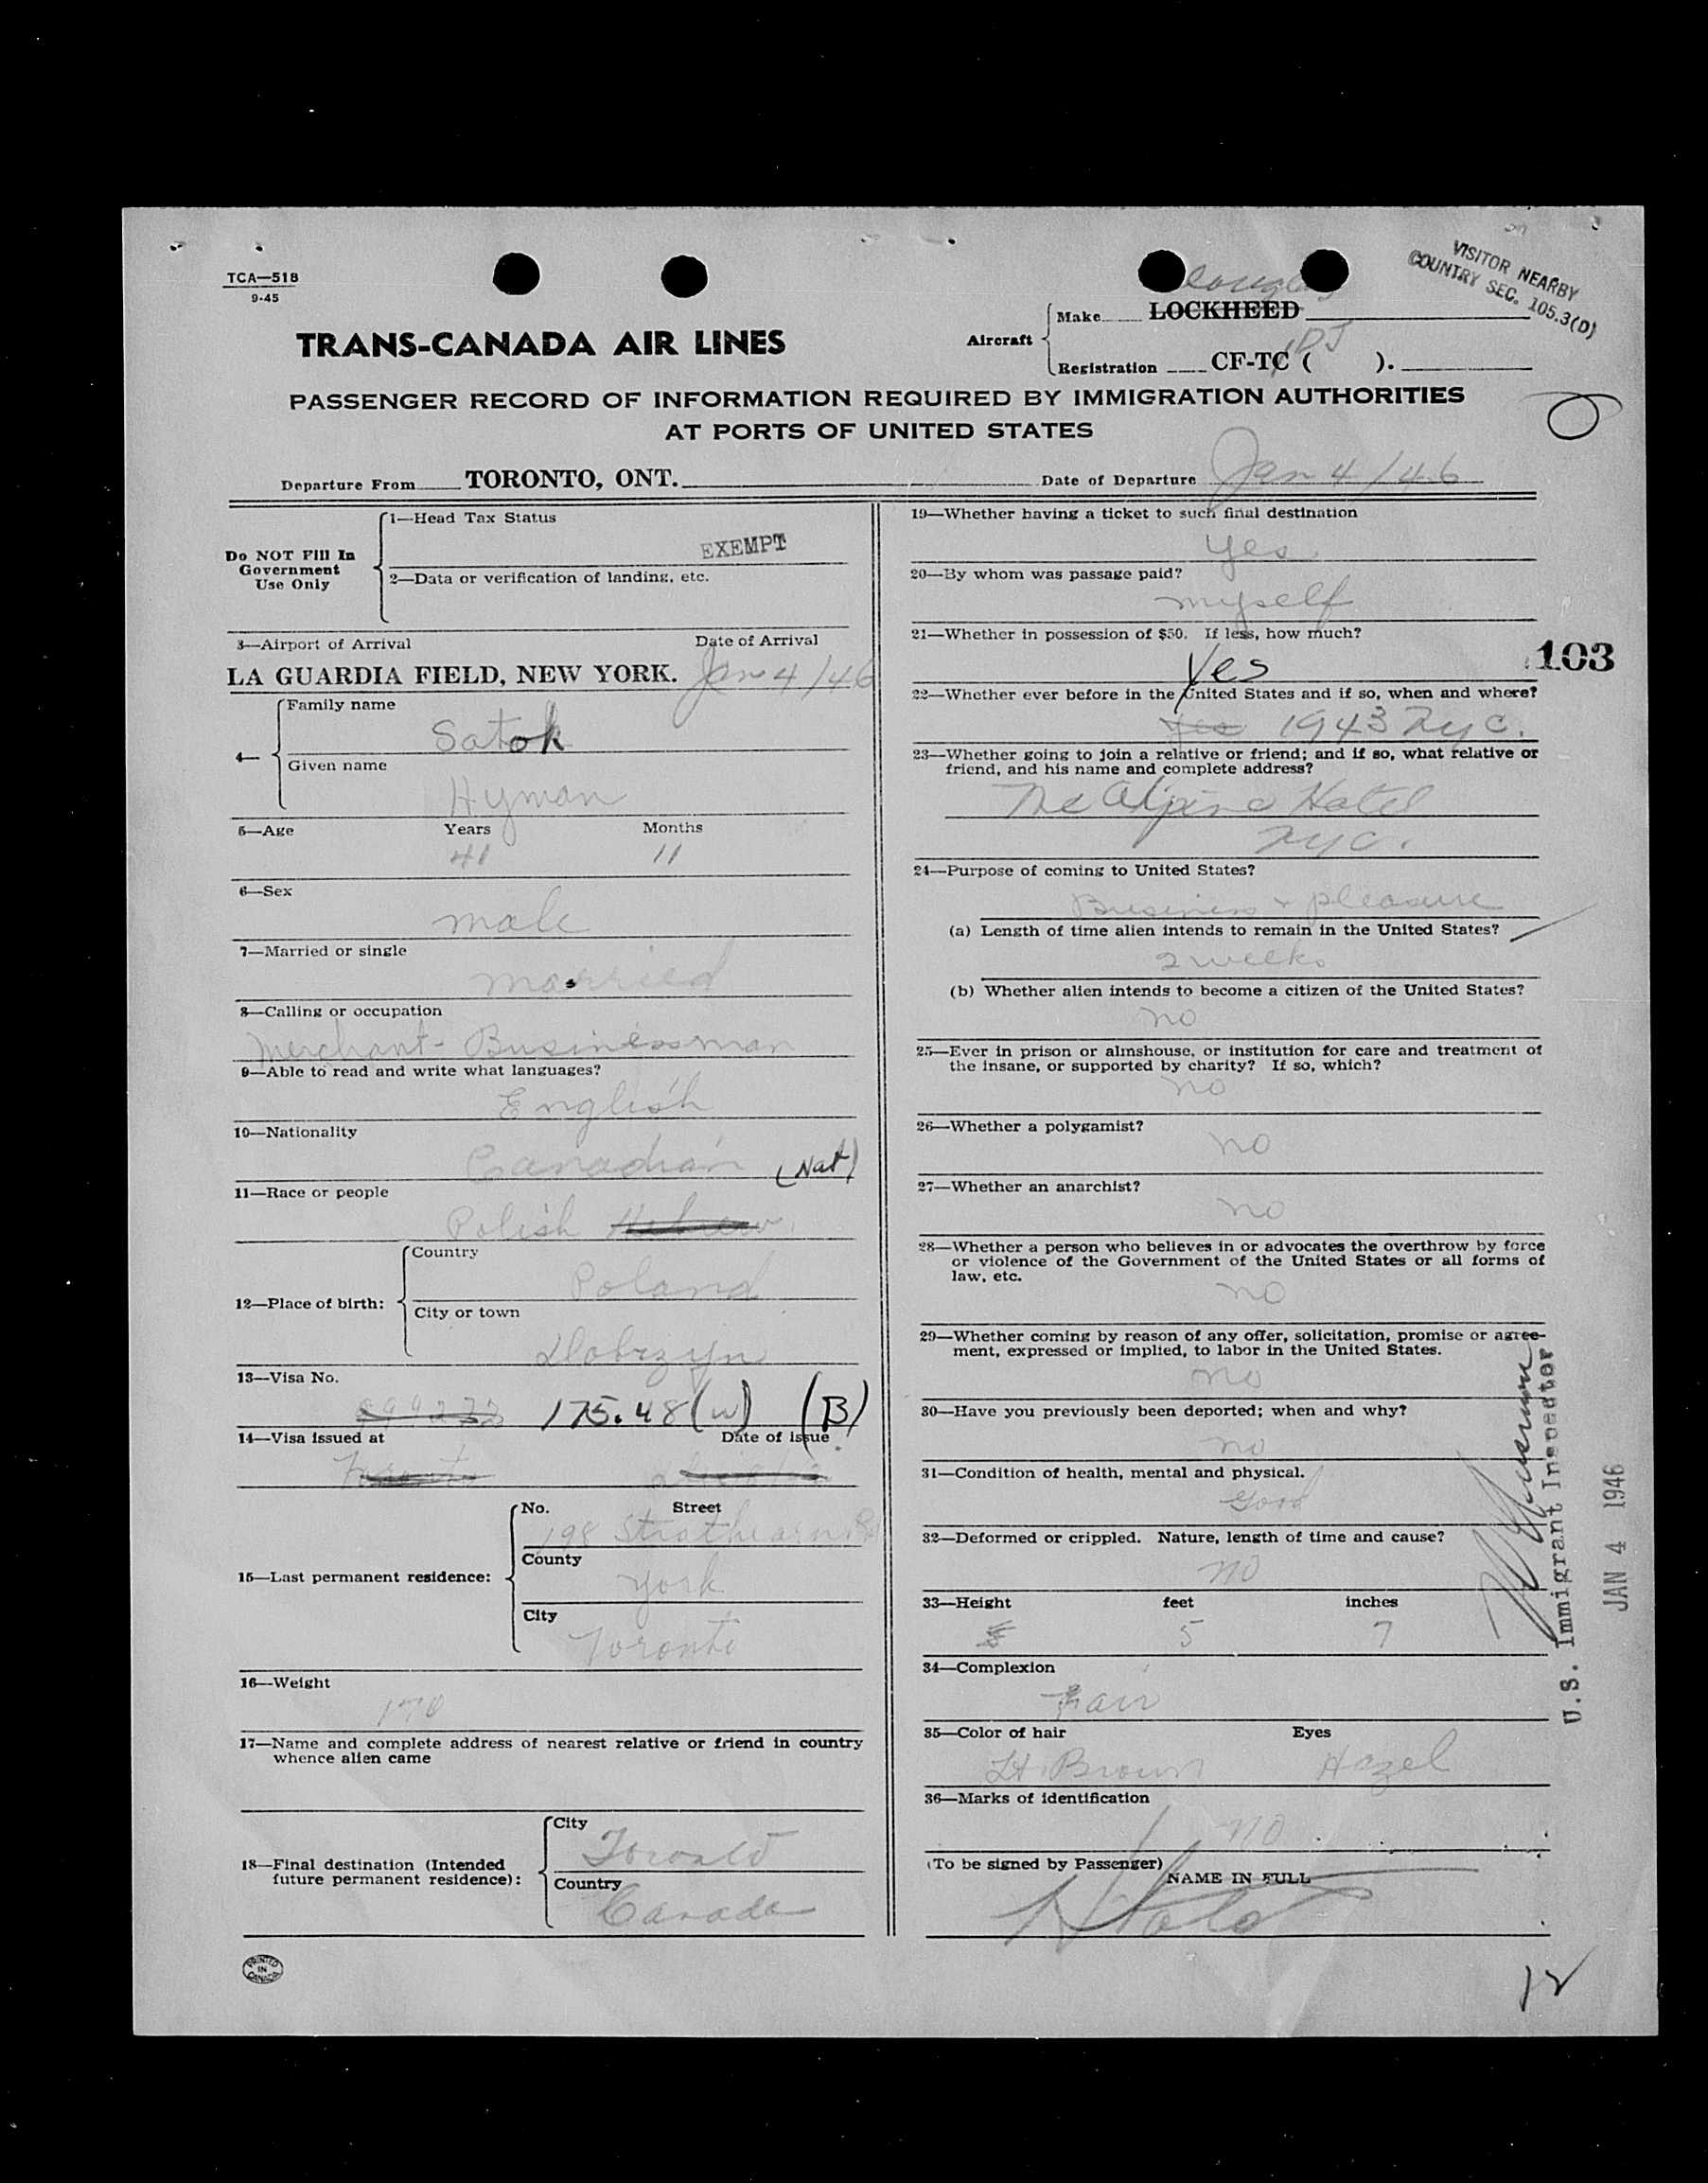 TCA—518
9-45
VISITOR NEARBY
COUNTRY SEC. 105.3(D)
TRANS-CANADA AIR LINES
Douglas
Aircraft
Make LOCKHEED
DJ
Registration CF-TC ( ).
PASSENGER RECORD OF INFORMATION REQUIRED BY IMMIGRATION AUTHORITIES
AT PORTS OF UNITED STATES
Departure From TORONTO, ONT. Date of Departure Jan 4/46
Do NOT Fill In
Government
Use Only
1—Head Tax Status
EXEMPT
2—Data or verification of landing, etc.
3—Airport of Arrival Date of Arrival
LA GUARDIA FIELD, NEW YORK. Jan 4/46
4—
Family name
Satok
Given name
Hyman
5—Age Years Months
41 11
6—Sex
male
7—Married or single
married
8—Calling or occupation
Merchant - Businessman
9—Able to read and write what languages?
English
10—Nationality
Canadian (Nat)
11—Race or people
Polish Hebrew
12—Place of birth:
Country
Poland
City or town
Dobrzyn
13—Visa No.
175.48 (w) (B)
14—Visa issued at Date of issue
Toronto
15—Last permanent residence:
No. Street
198 Strathearn Rd
County
York
City
Toronto
16—Weight
170
17—Name and complete address of nearest relative or friend in country
whence alien came
18—Final destination (Intended
future permanent residence):
City
Toronto
Country
Canada
PRINTED
IN
CANADA
19—Whether having a ticket to such final destination
yes
20—By whom was passage paid?
myself
21—Whether in possession of $50. If less, how much?
Yes
103
22—Whether ever before in the United States and if so, when and where?
yes 1943 NYC.
23—Whether going to join a relative or friend; and if so, what relative or
friend, and his name and complete address?
The Alpine Hotel
NYC.
24—Purpose of coming to United States?
Business + pleasure
(a) Length of time alien intends to remain in the United States?
2 weeks
(b) Whether alien intends to become a citizen of the United States?
no
25—Ever in prison or almshouse, or institution for care and treatment of
the insane, or supported by charity? If so, which?
no
26—Whether a polygamist?
no
27—Whether an anarchist?
no
28—Whether a person who believes in or advocates the overthrow by force
or violence of the Government of the United States or all forms of
law, etc.
no
29—Whether coming by reason of any offer, solicitation, promise or agree-
ment, expressed or implied, to labor in the United States.
no
30—Have you previously been deported; when and why?
no
31—Condition of health, mental and physical.
Good
32—Deformed or crippled. Nature, length of time and cause?
no
33—Height feet inches
5 7
34—Complexion
Fair
35—Color of hair Eyes
Lt. Brown Hazel
36—Marks of identification
no
(To be signed by Passenger)
NAME IN FULL
U.S. Immigrant Inspector
JAN 4 1946
12